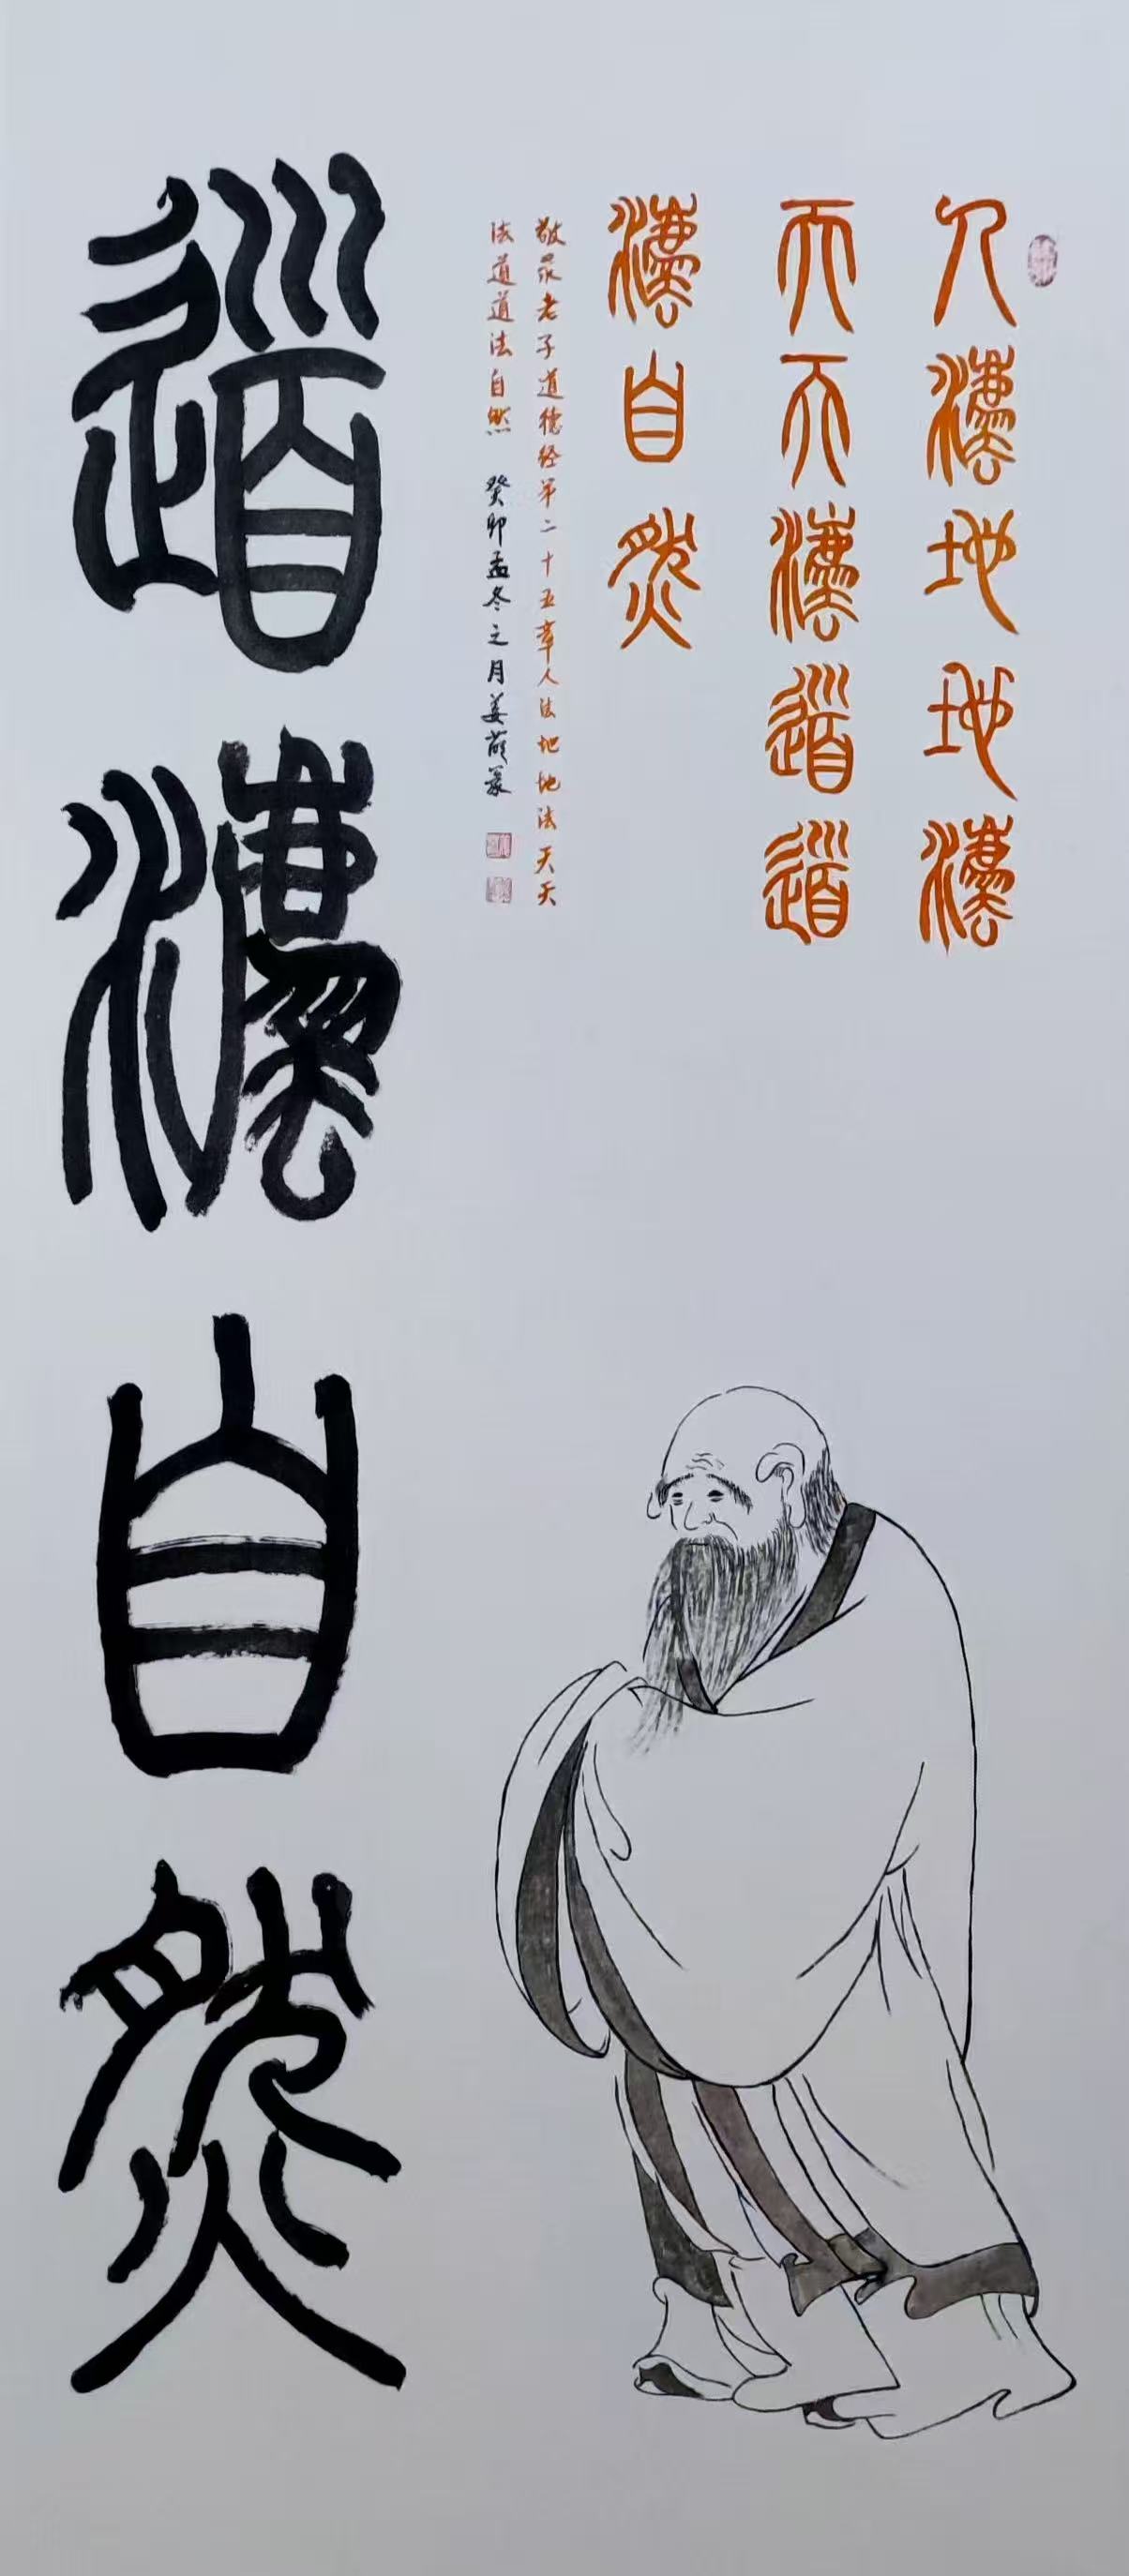 人灋地地灋
天天灋道道
灋自然
敬录老子道德经第二十五章人法地地法天天
法道道法自然 癸卯孟冬之月姜篆
道灋自然